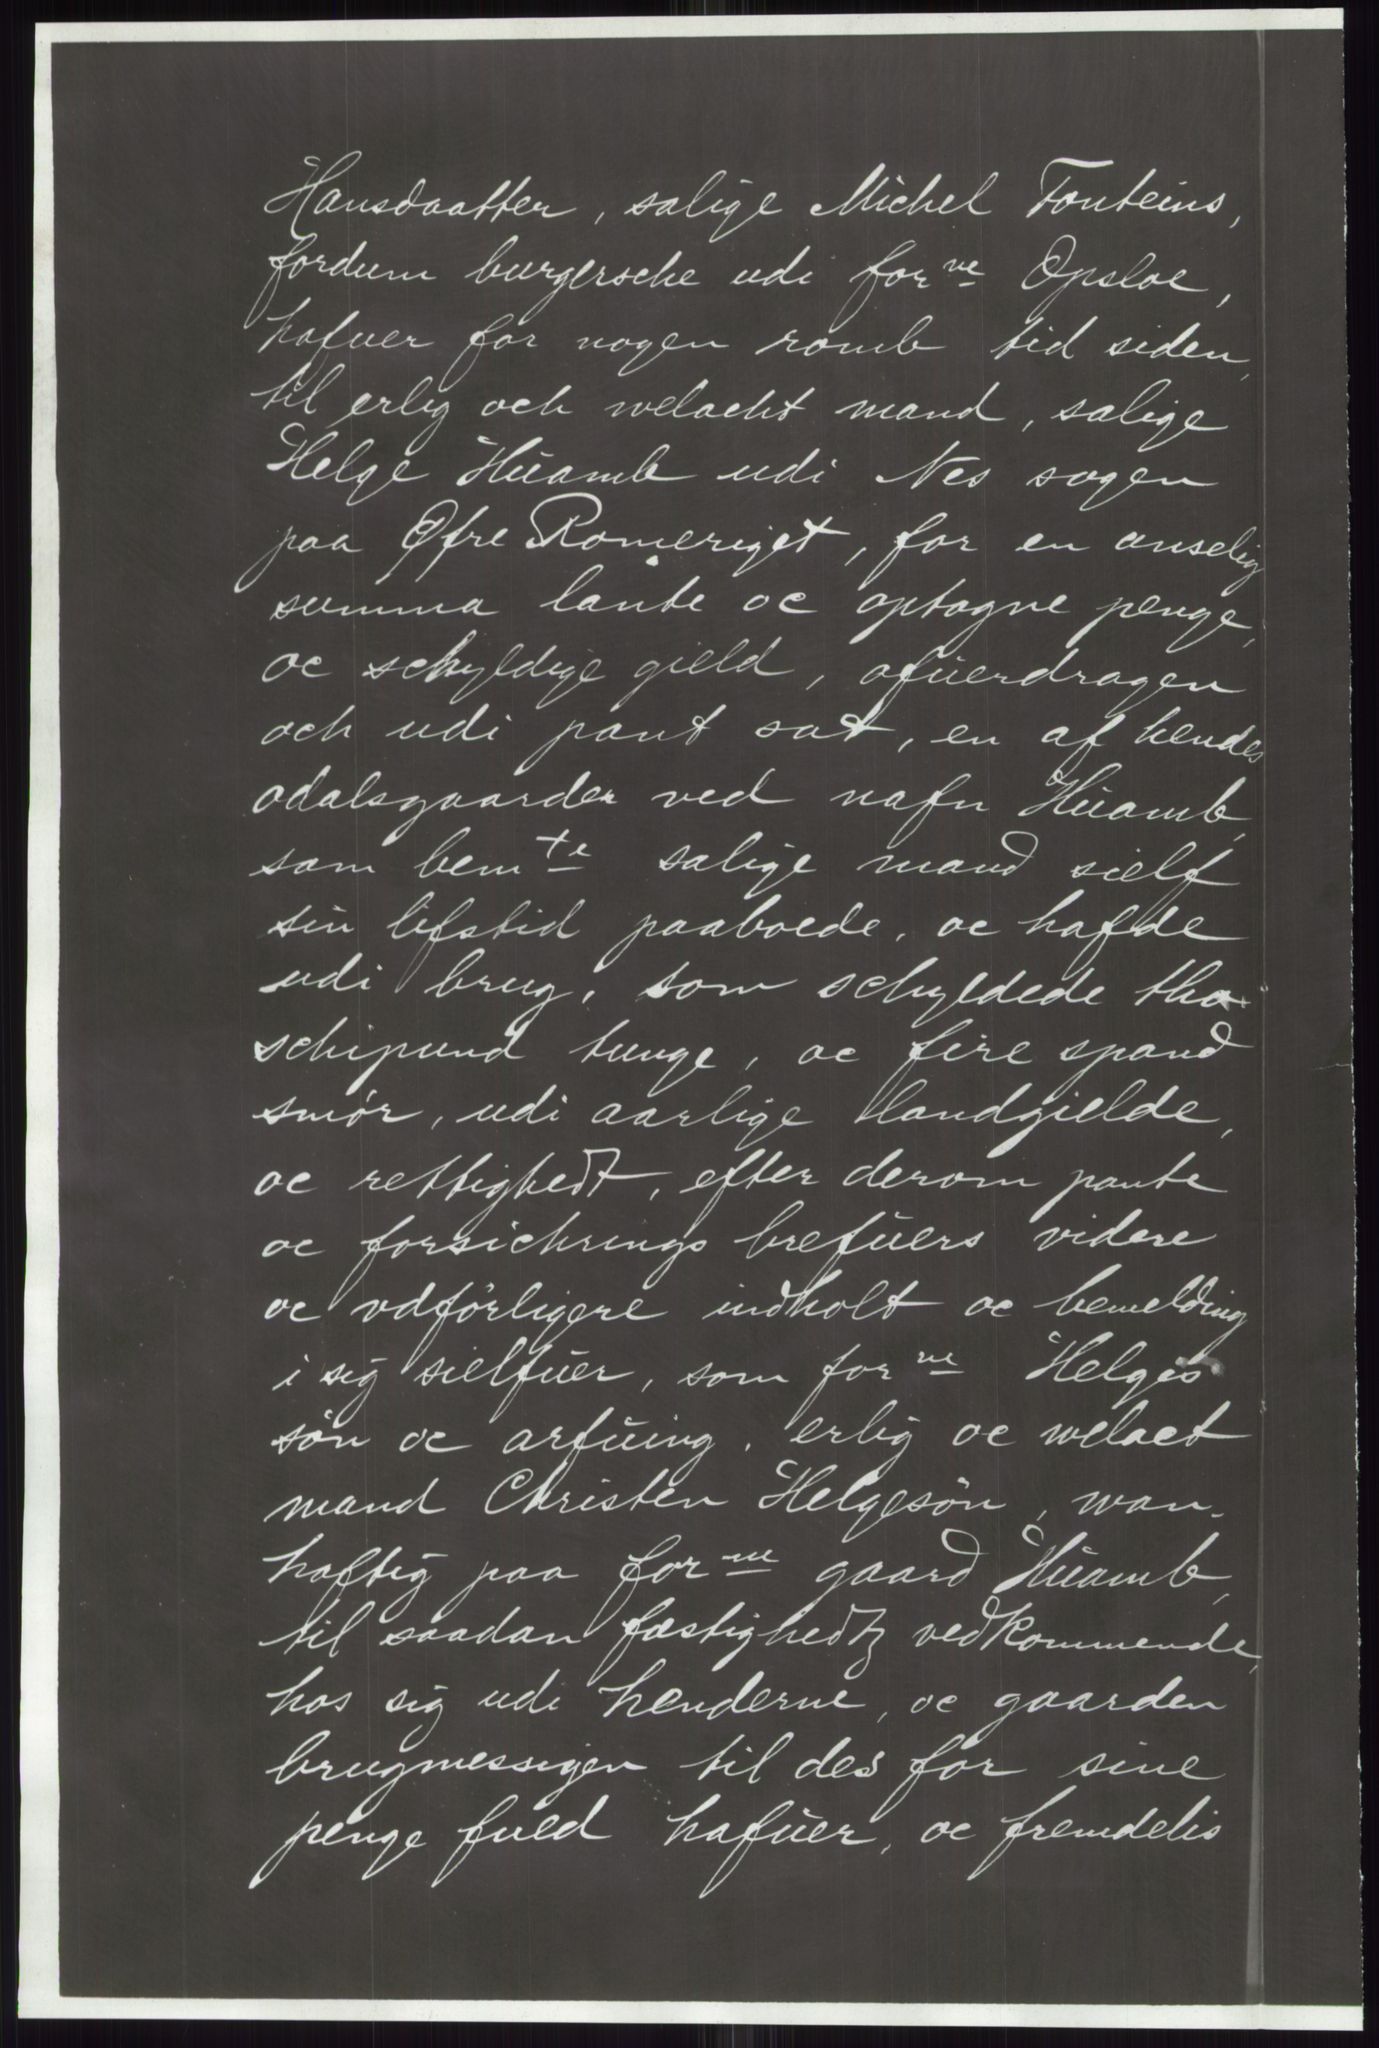 Hansdaatter, salige Michel Fonteins,
fordum burgersche udi for<sup>ne</sup> Opsloe,
hafuer for nogen romb tid siden,
til erlig och welacht mand, salige
Helge Hüamb udi Nes sogen
paa Øfre Romeriget, for en anselig
summa lante oc optagne penge,
oc schyldige gield, ofüerdragen
och udi pant sat, en af hendes
odalsgaarder ved nafn Hüamb,
som bem<sup>te</sup> salige mand sielf
sin lifstid paaboede, oc hafde
udi brug, som schyldede tho
schipund tunge, oc fire spand
smør, udi aarlige landgielde,
oc rettighedt, efter derom pante
oc forsichrings brefüers videre
oc vdførligere indholt oc bemelding
i sig sielfüer, som for<sup>ne</sup> Helges
søn oc arfüing, erlig oc welact
mand Christen Helgesøn, won-
haftig paa for<sup>ne</sup> gaard Hüamb,
til saadan fæstighedtz vedkommende,
hos sig udi henderne, oc gaarden
brugmessigen til des for sine
penge fuld hafüer, oc fremdelis